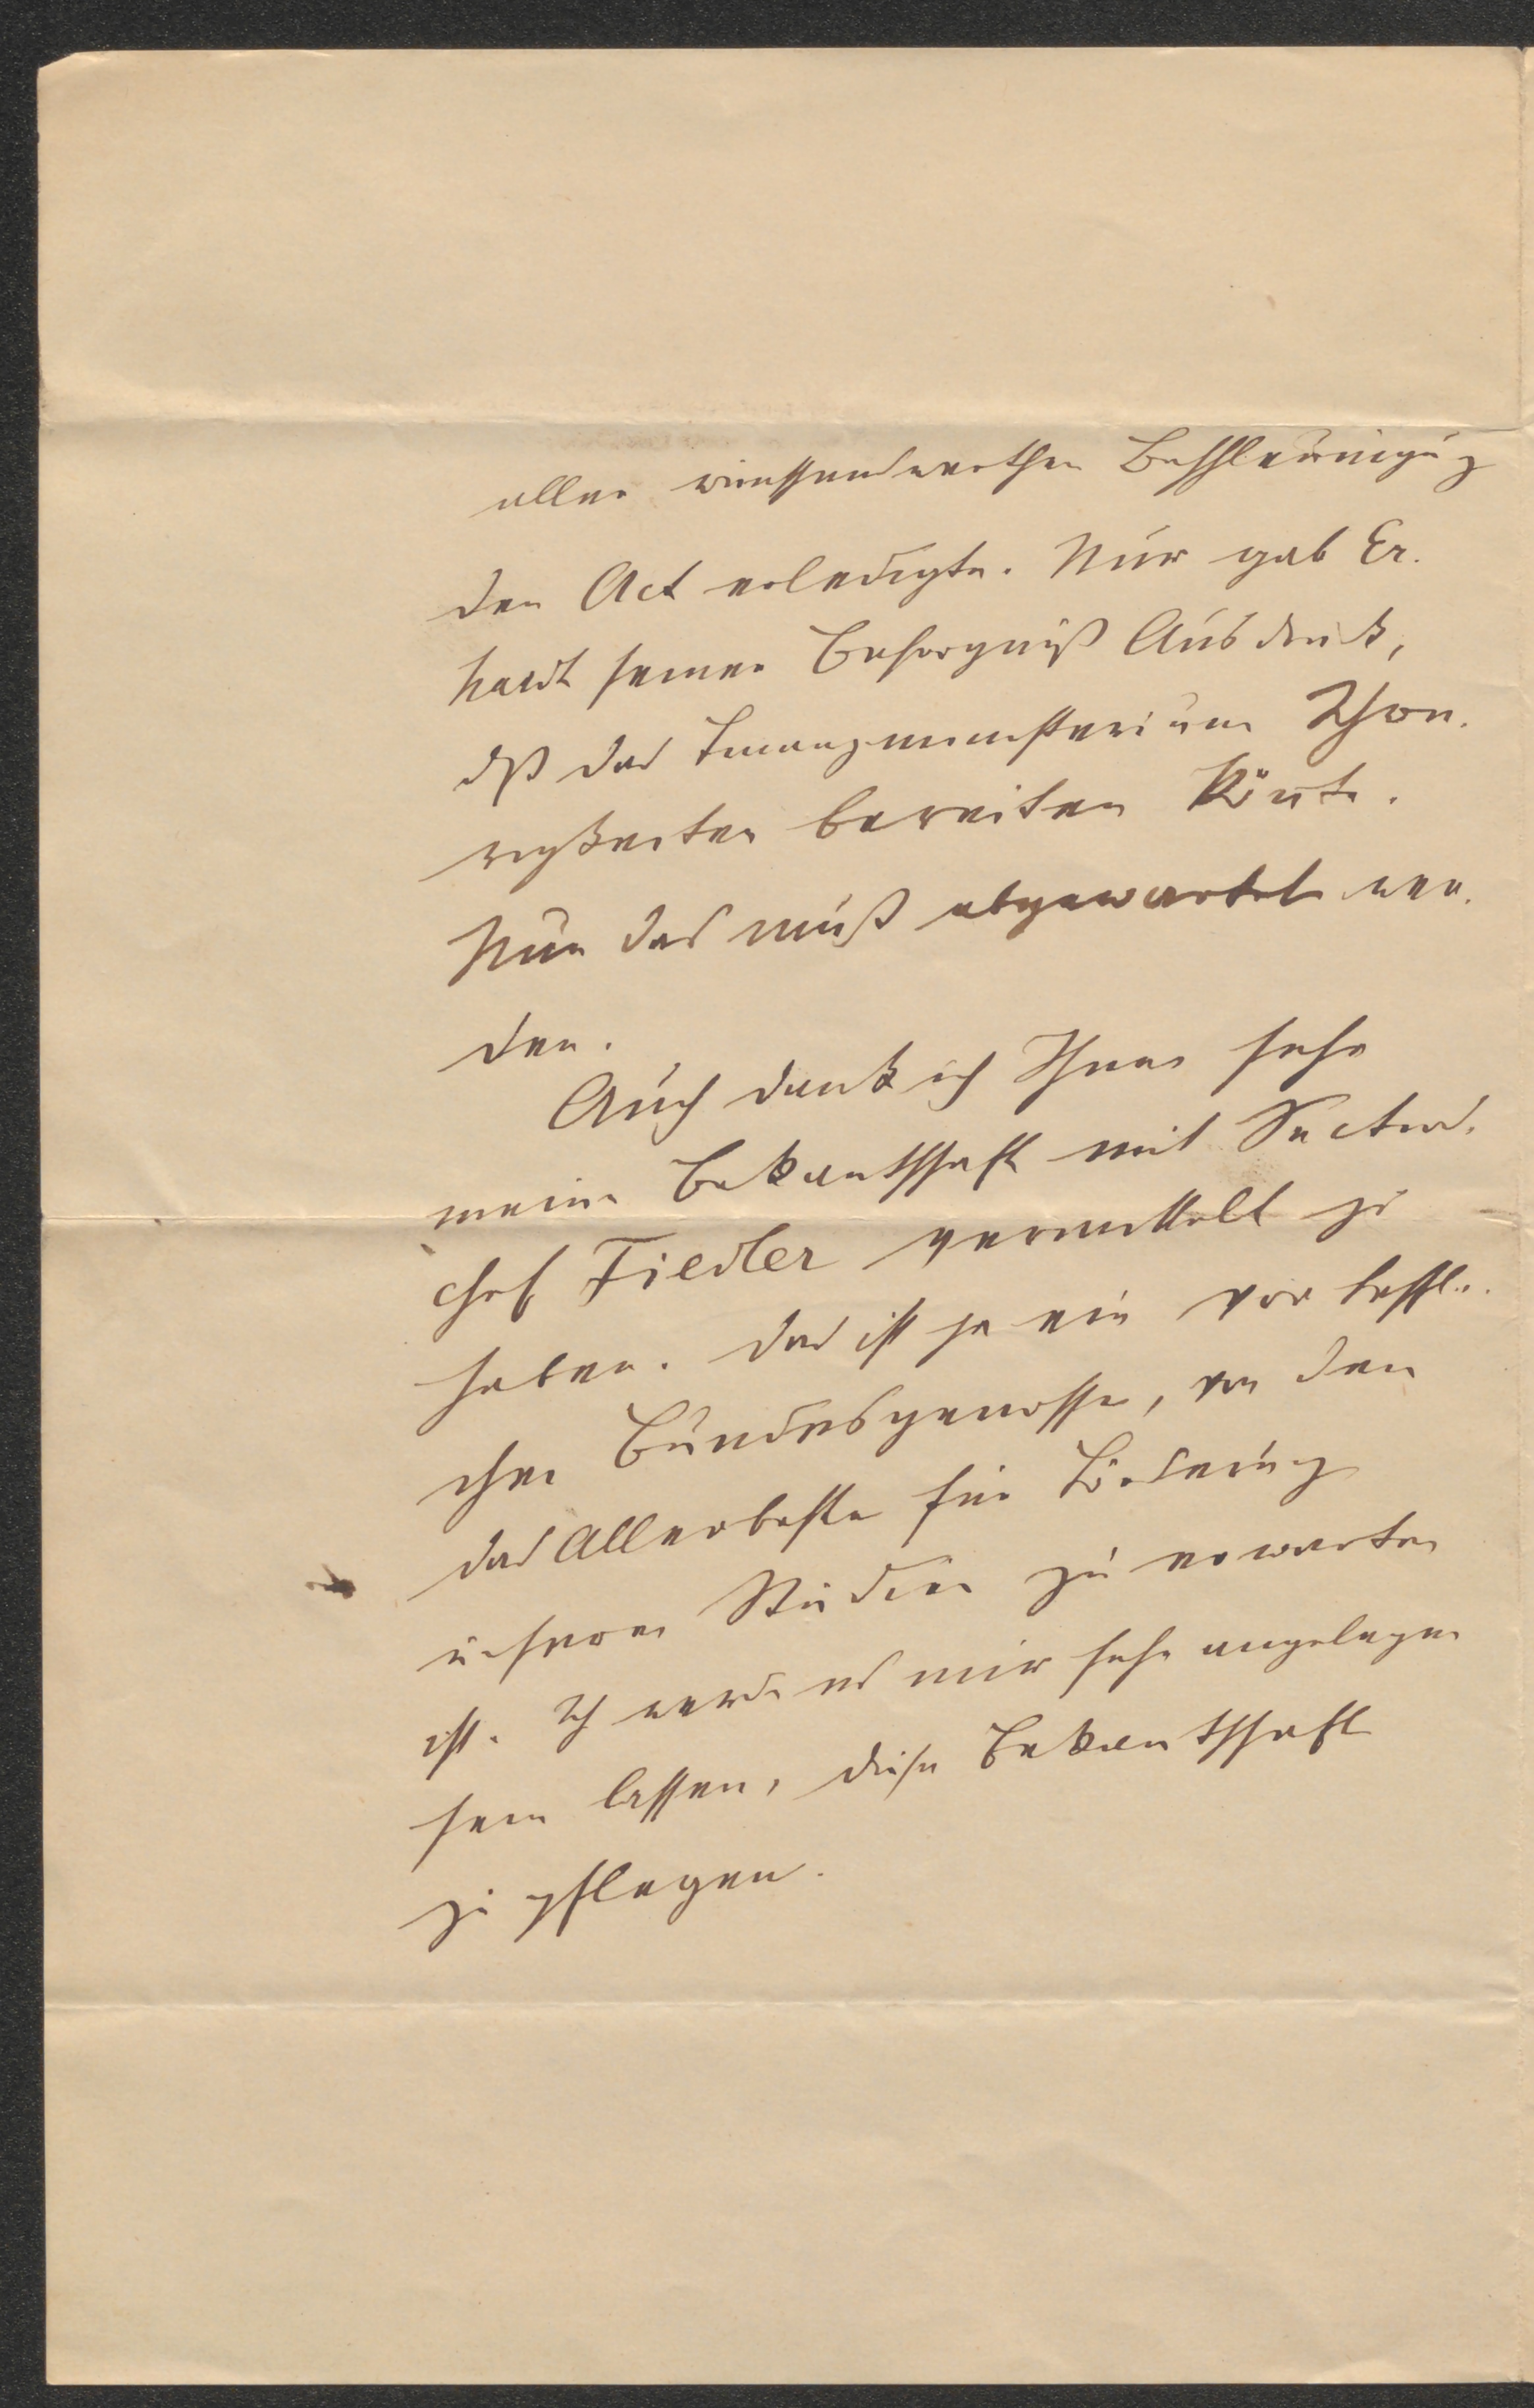 aller wünschenswerthen Beschleunigug
den Act erledigte. Nur gab Er.
hardt seiner Besorgniß Ausdruk,
dß das Finanzministerium Schwe.
rigkeiten bereiten könte.
Nun das muß abgewartet wer.
den.
Auch dank ich Ihnen sehr
meine Bekantschaft mit Sections.
chef Fiedler vermittelt zu
haben. Das ist ja ein vortreffli.
cher Bundesgenosse, von dem
das Allerbeste für Förderung
unserer Studien zu erwarten
ist. Ich werde es mir sehr angelegen
sein lassen, diese Bekantschaft
zu pflegen.